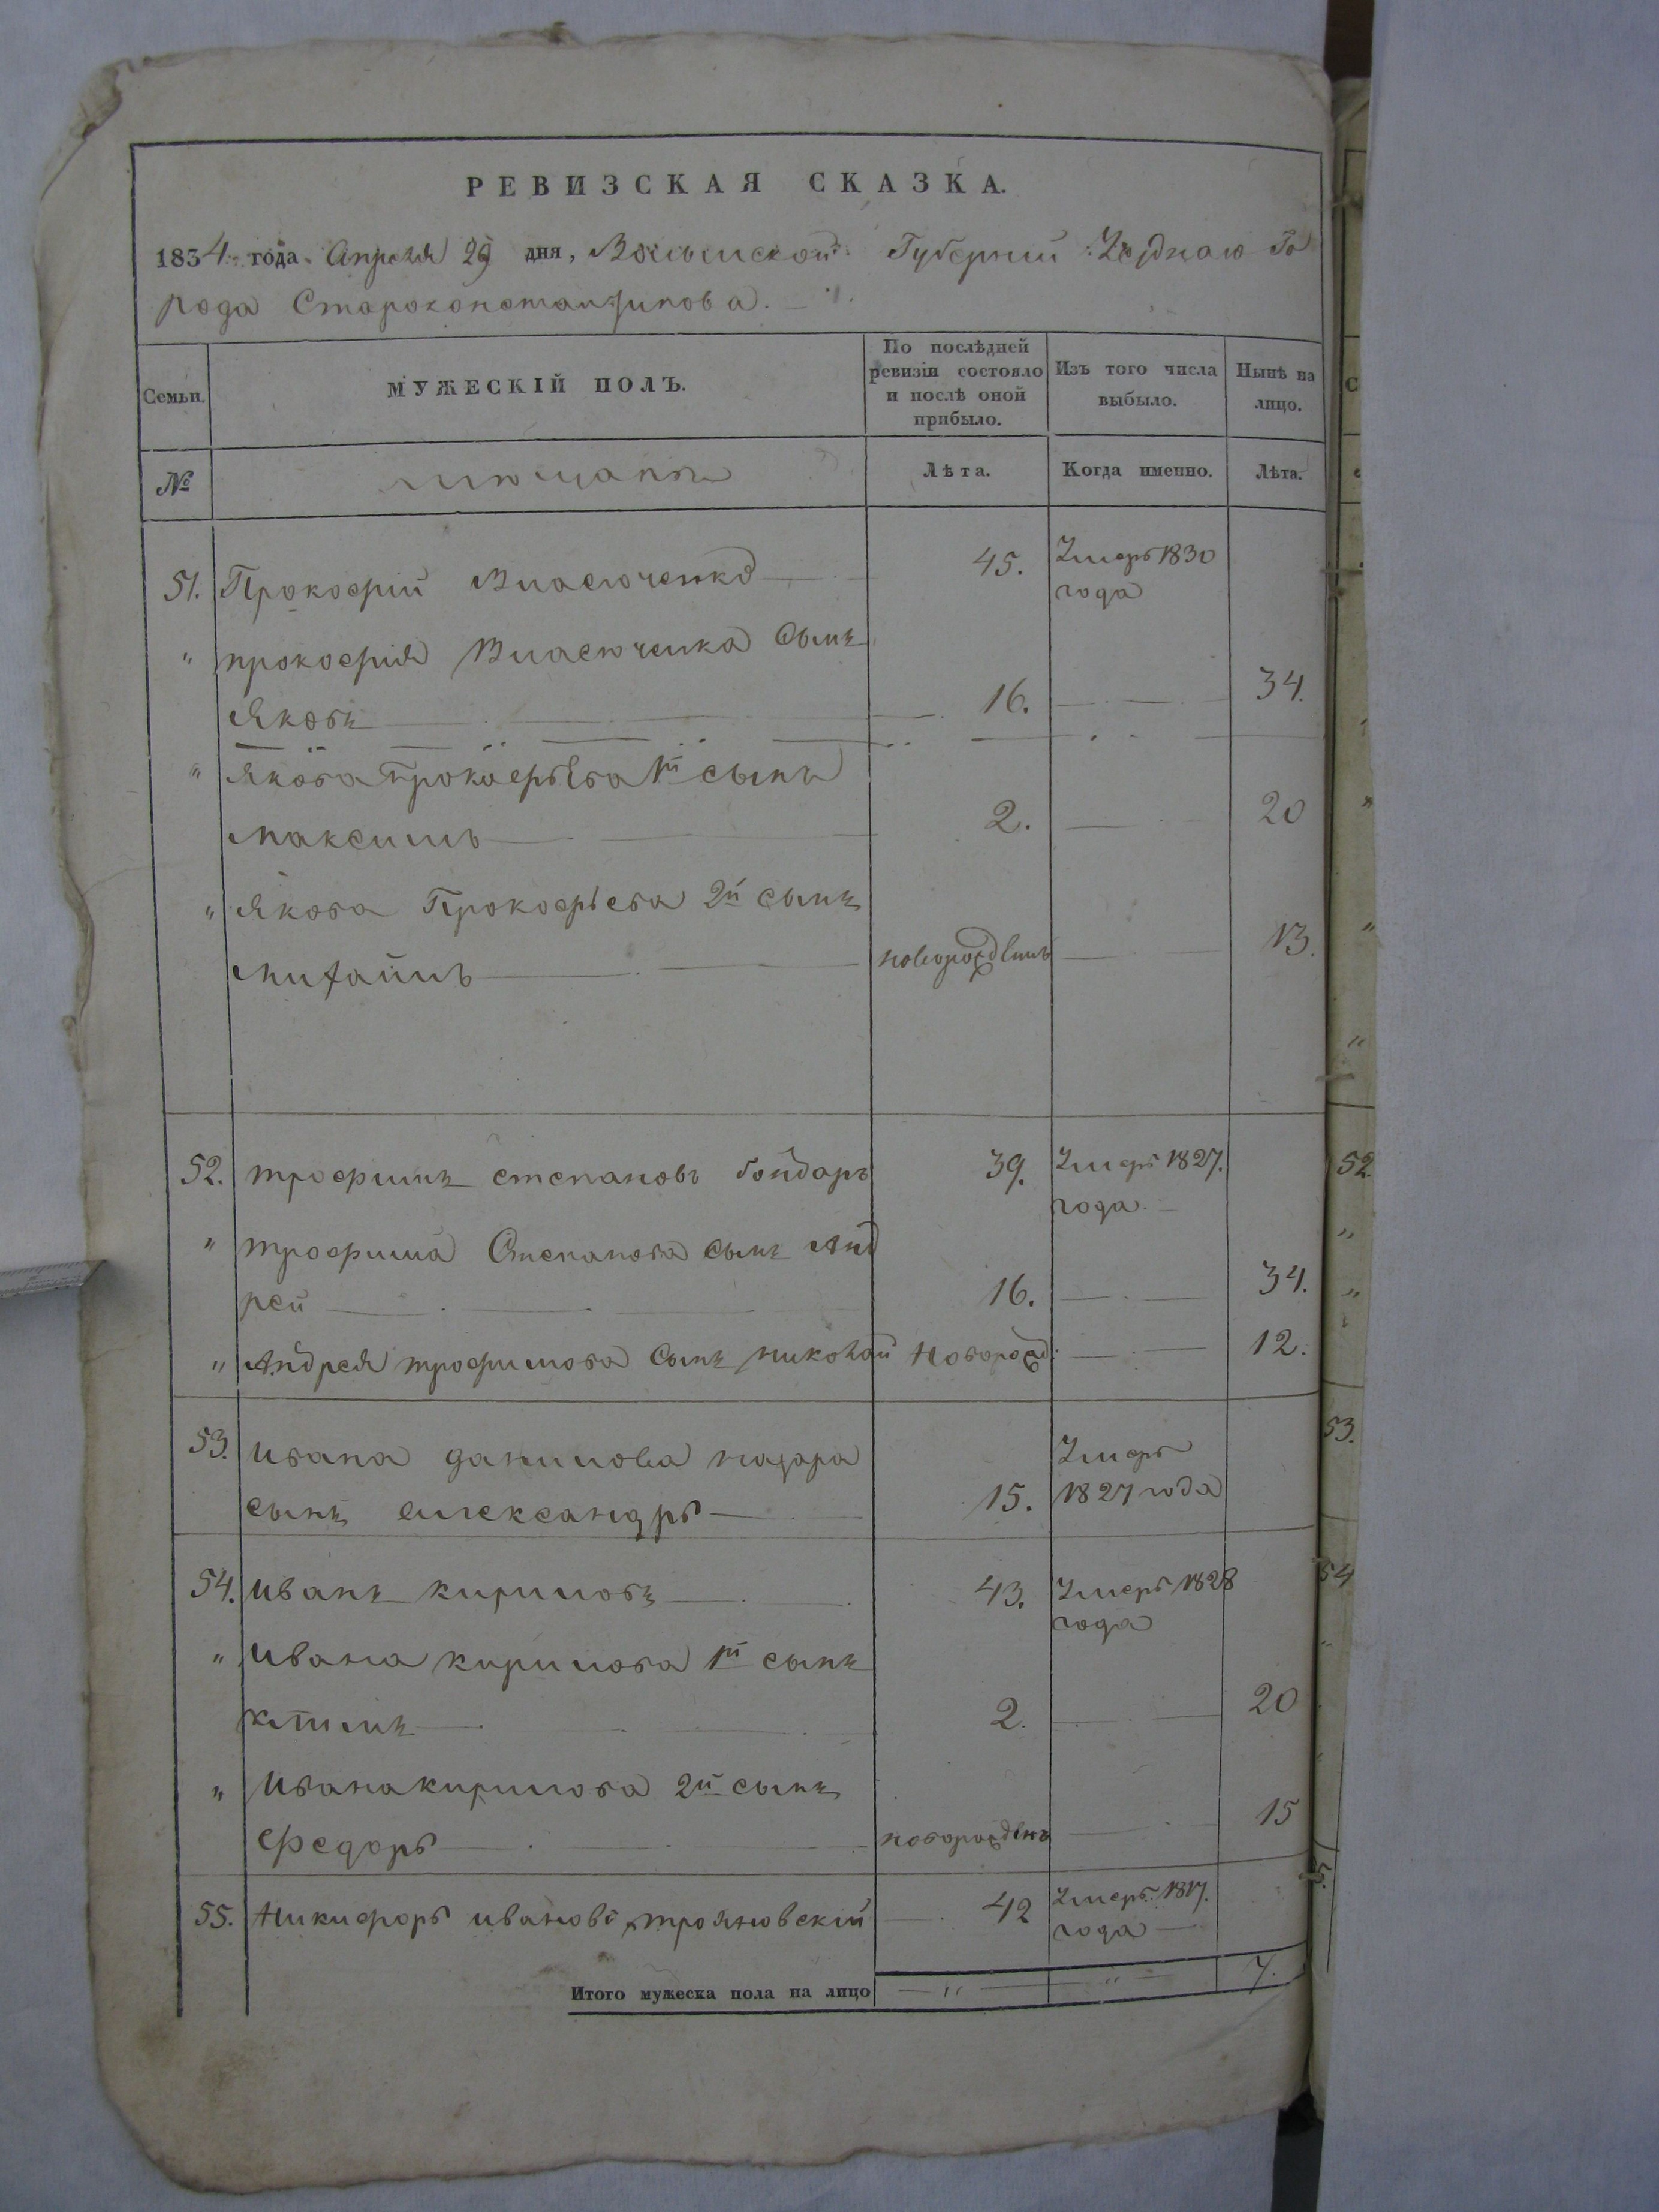 РЕВИЗСКАЯ СКАЗКА.
1834 года Апреля 29 дня, Волынской Губернии Уезднаго Го
рода Староконстантинова.
Семьи. МУЖЕСКІЙ ПОЛЪ. По послѣдней ревизіи состояло и послѣ оной прибыло. Изъ того числа выбыло. Нынѣ на лицо.
№ мещане Лѣта. Когда именно. Лѣта.
51. Прокофій Власюченко 45. Умеръ 1830
года
" прокофія Власюченка Сынъ
Яковъ 16. 34.
" Якова Прокофьева 1й сынъ
Максимъ 2. 20
" Якова Прокофьева 2й сынъ
Михайлъ новорожденъ 13.
52. трофимъ степановъ бондарь 39. Умеръ 1827.
года
" трофима Степанова сынъ Анд
рей 16. 34.
" Андрея трофимова Сынъ николай новорожд: 12.
53. ивана данилова
сынъ александръ 15. Умеръ
1827 года
54. иванъ кириловъ 43. Умеръ 1828
года
" ивана кирилова 1й сынъ
климъ 2. 20
" ивана кирилова 2й сынъ
Федоръ новорожденъ 15
55. Никифоръ ивановъ трояновскій 42 Умеръ 1817.
года
Итого мужеска пола на лицо " " 7.
52.
53.
54